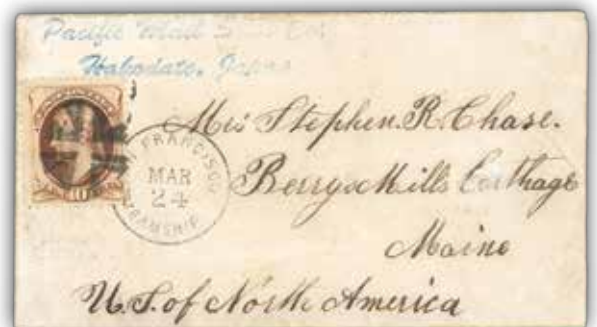 Pacific Mail
Hakodate, Japan
10
SAN FRANCISCO
MAR
24
STEAMSHIP
Mrs Stephen. R. Chase.
Berrys Mills Carthage
Maine
U.S. of North America